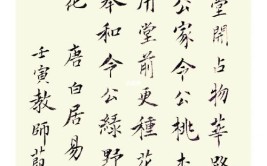 堂開占物華路
公家令公桃李
用堂前更種花
奉和令公綠野
花 唐白居易
壬寅教師節